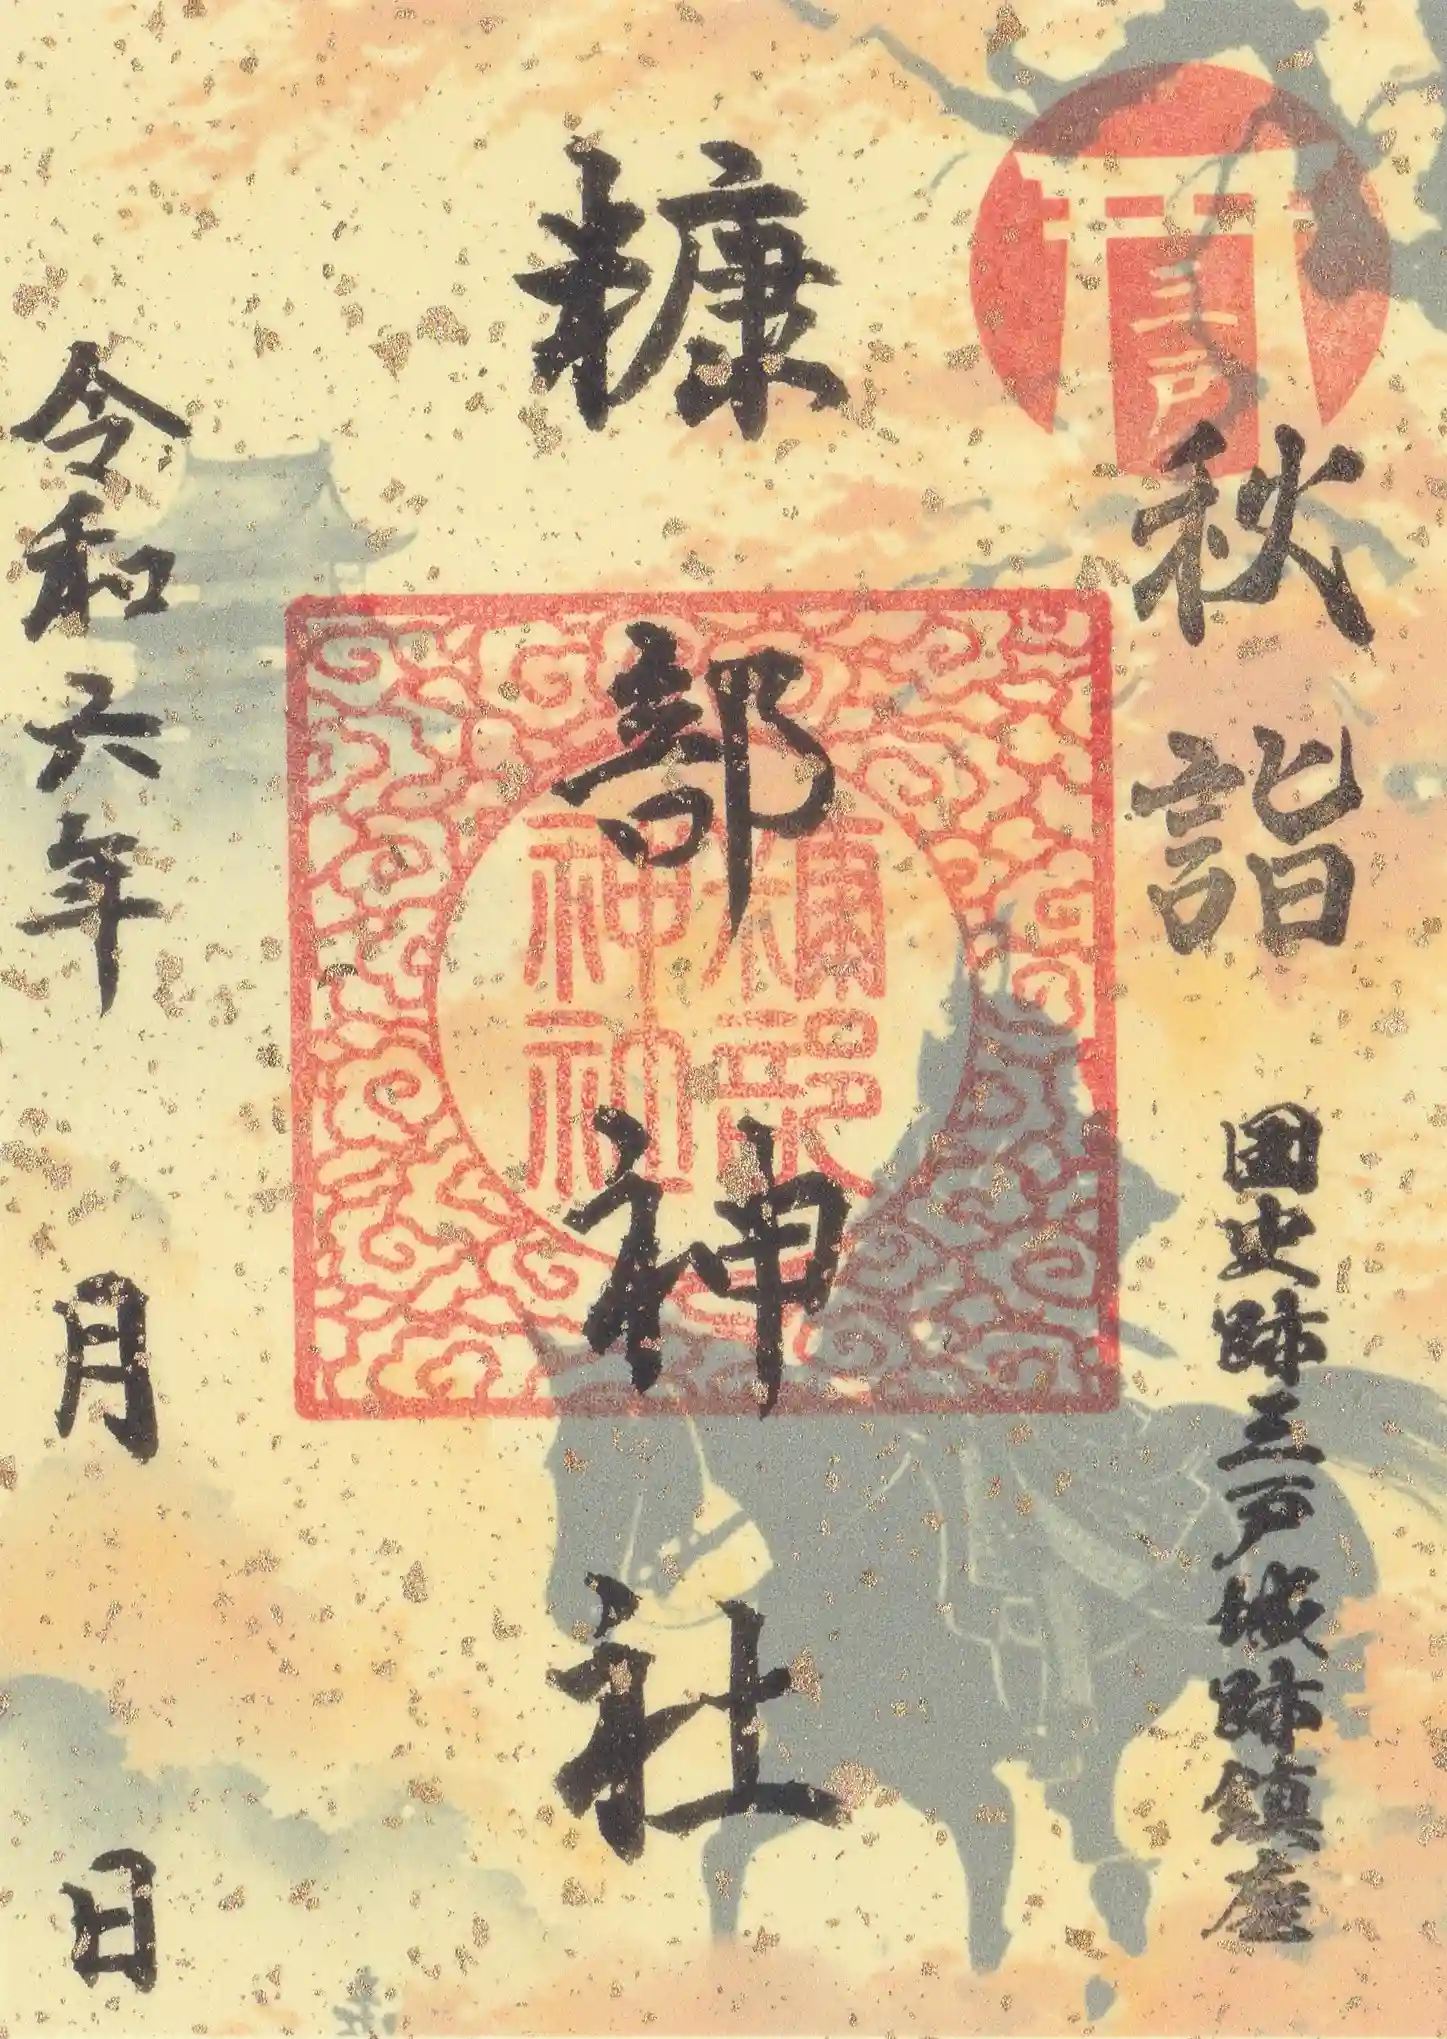 三戸
秋詣
国史跡三戸城跡鎮座
糠部神社
糠部
神社
令和六年 月 日